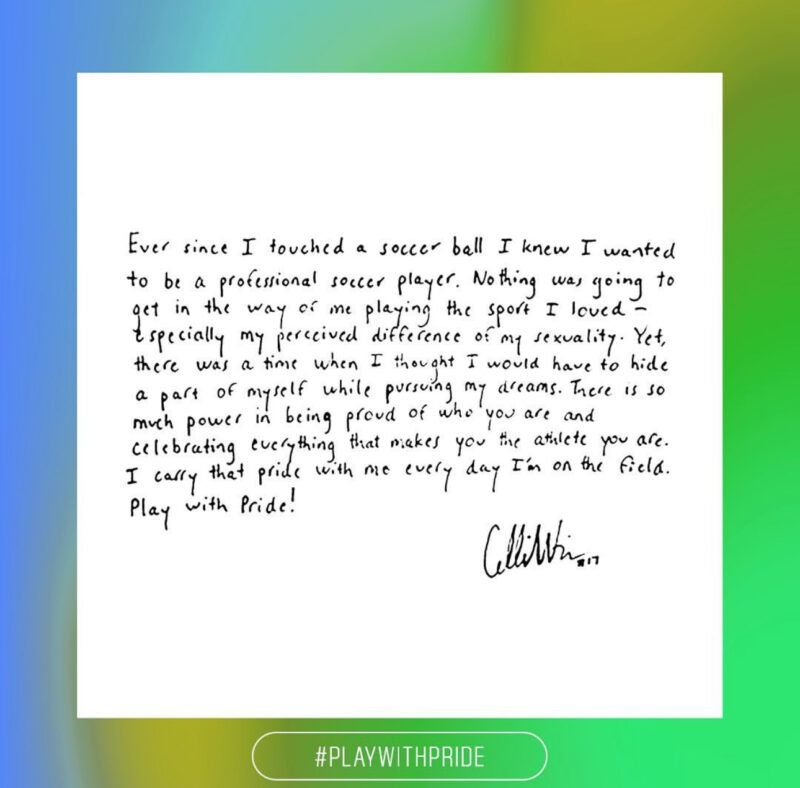 Ever since I touched a soccer ball I knew I wanted
to be a professional soccer player. Nothing was going to
get in the way of me playing the sport I loved –
especially my perceived difference of my sexuality. Yet,
there was a time when I thought I would have to hide
a part of myself while pursuing my dreams. There is so
much power in being proud of who you are and
celebrating everything that makes you the athlete you are.
I carry that pride with me every day I'm on the field.
Play with Pride!
#17
#PLAYWITHPRIDE